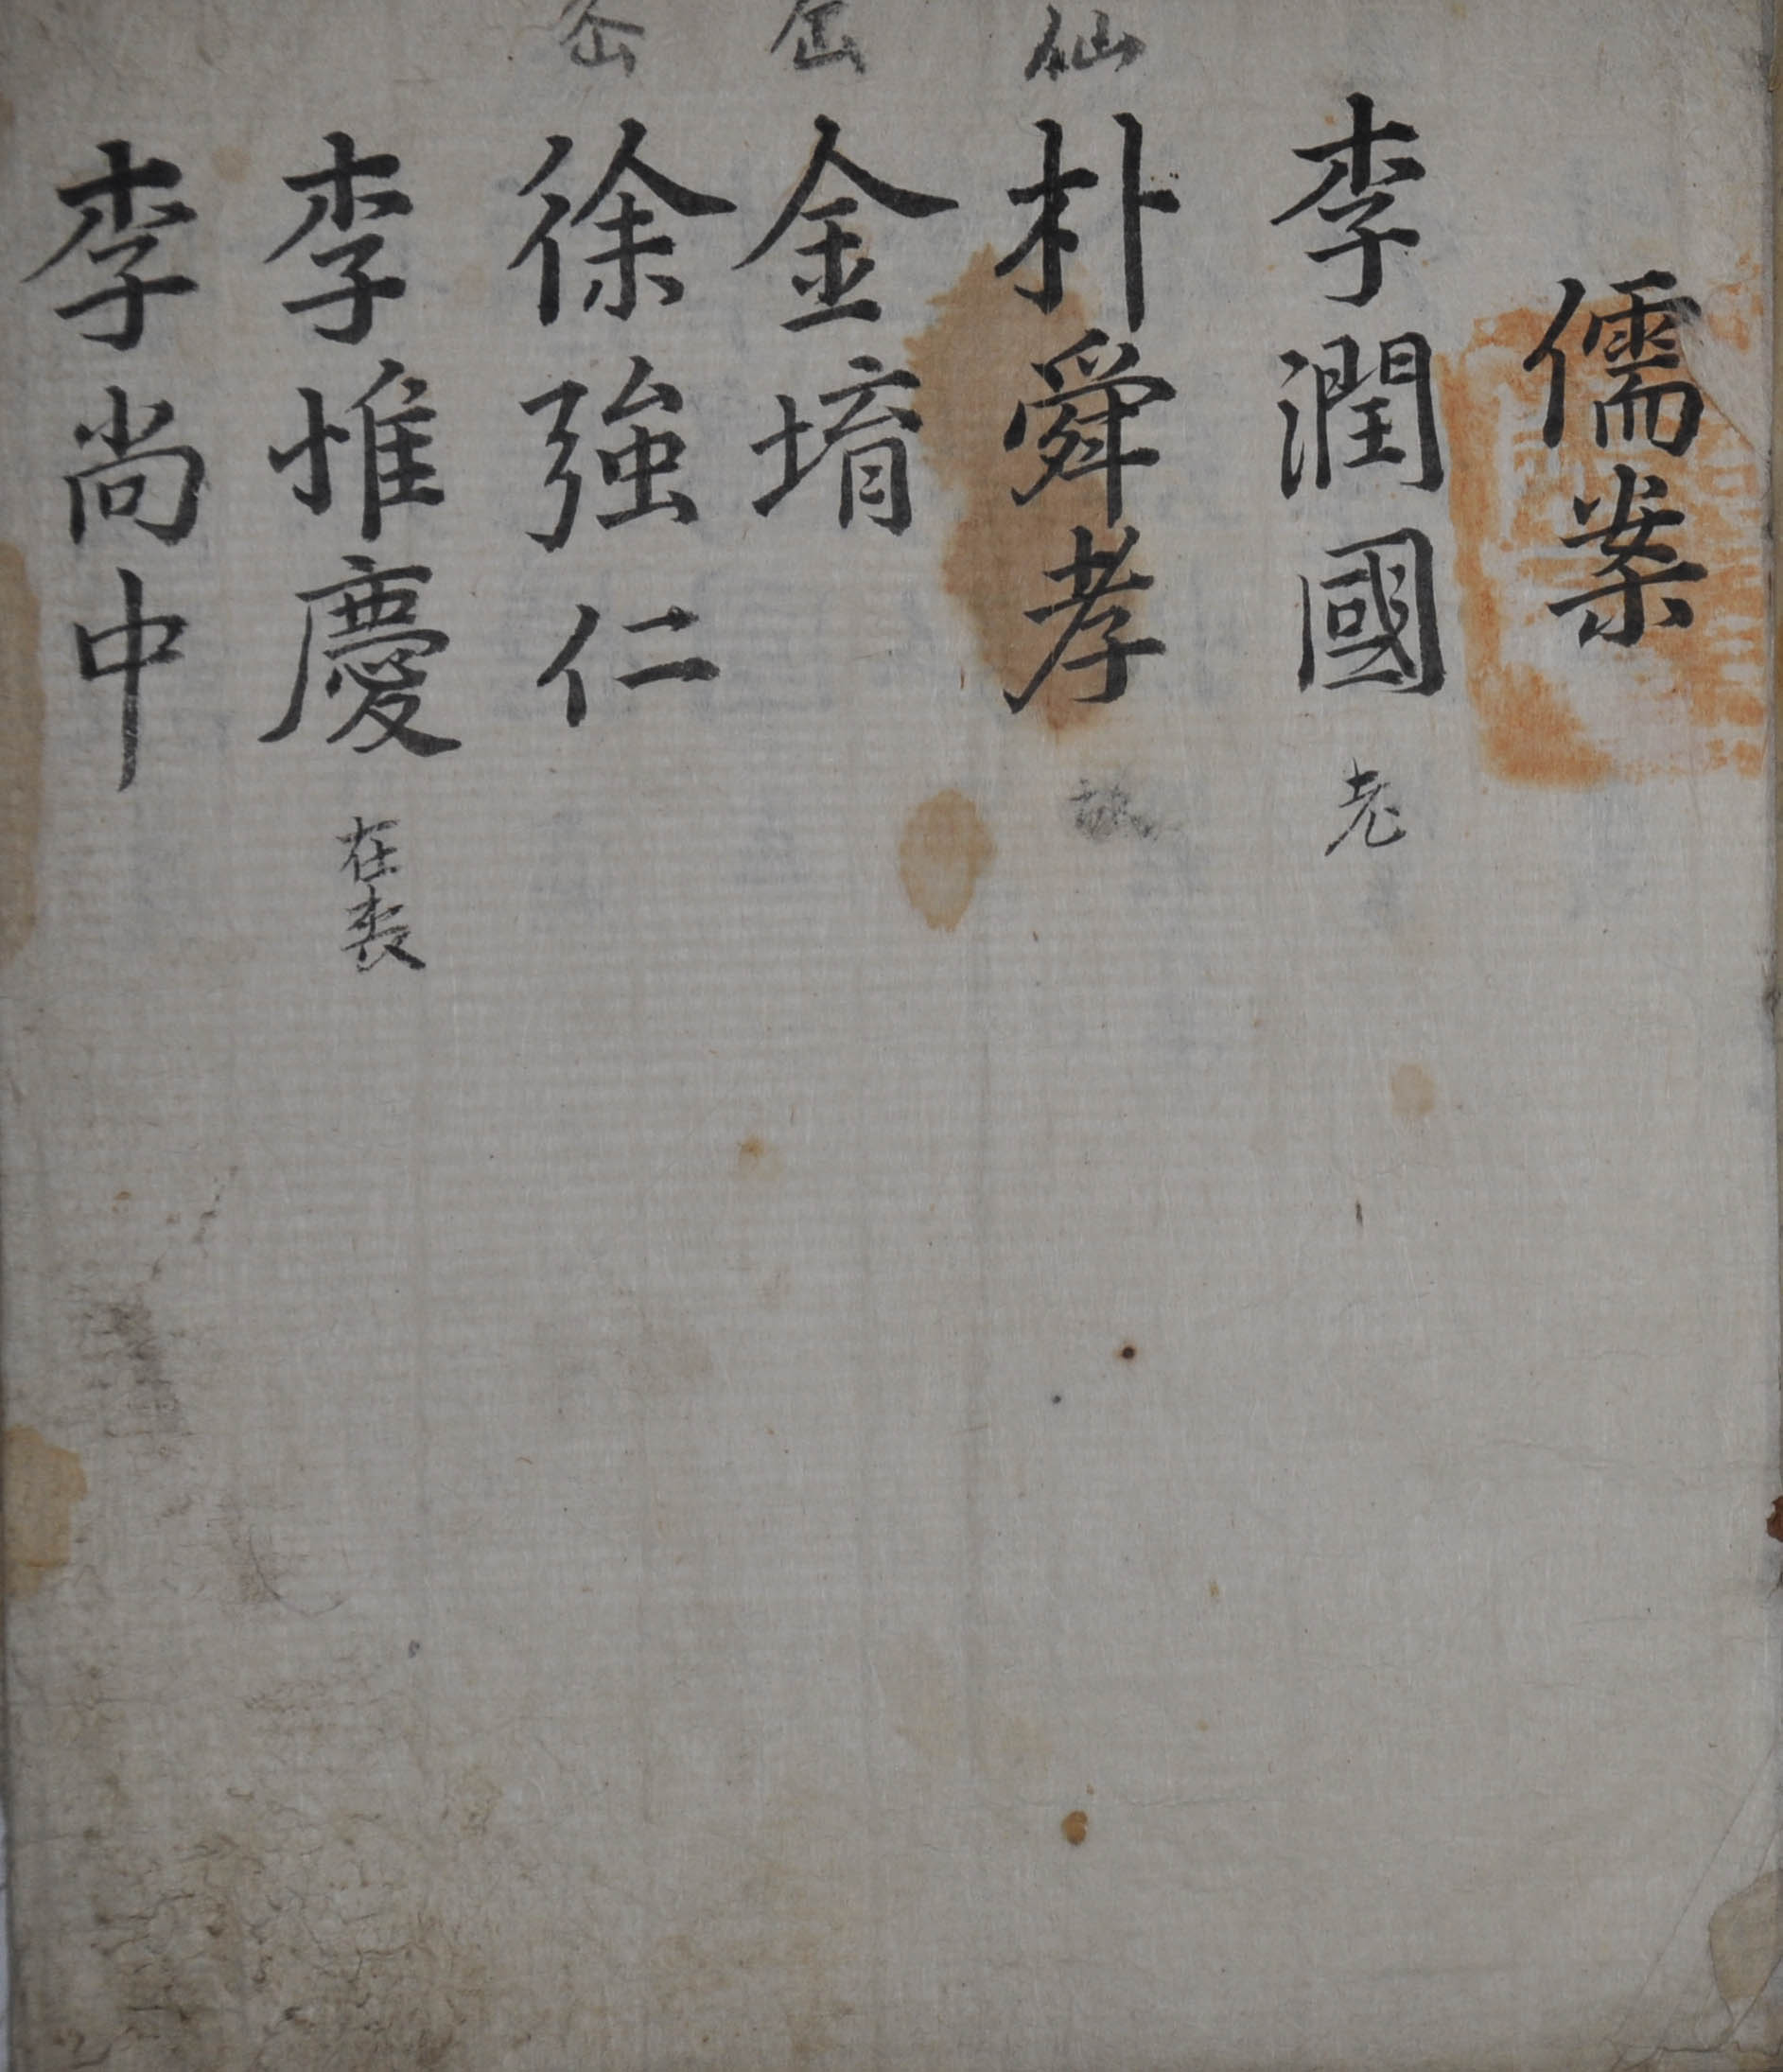 儒案
李潤國 老
仙 朴舜孝
金堉
徐強仁
李惟慶 在喪
李尚中